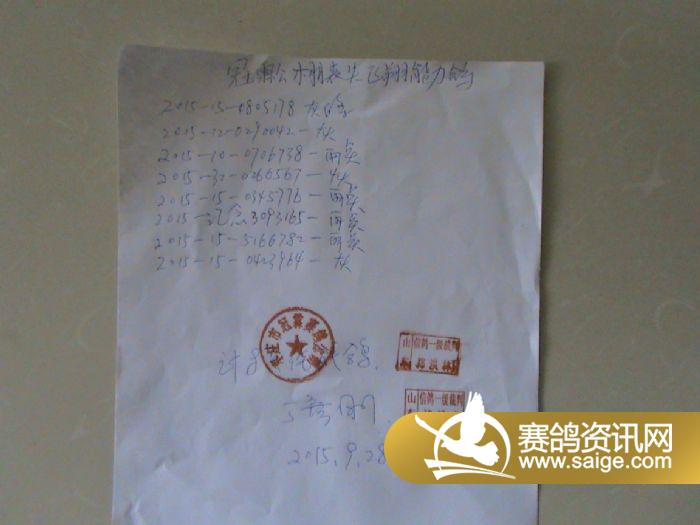 冠霖公棚丧失飞翔能力鸽
2015-15-0805178 灰
2015-12-0290042-灰
2015-10-0706738-雨点
2015-32-0266567-灰
2015-15-0345776-雨点
2015-纪念3093165-雨点
2015-15-5166782-雨点
2015-15-0423964-灰
市冠霖赛鸽
山 信鸽一级裁判
山 信鸽一级裁判
2015.9.28
赛鸽资讯网
www.saige.com